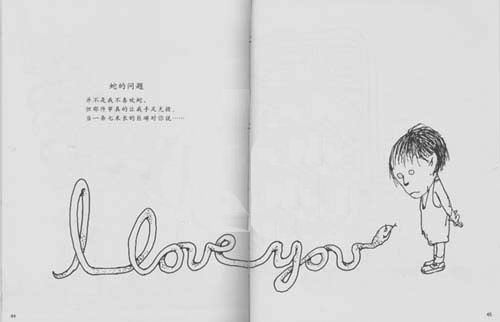 蛇的问题
并不是我不喜欢蛇，
但那件事真的让我手足无措，
当一条七米长的巨蟒对你说……
I love you
44
45